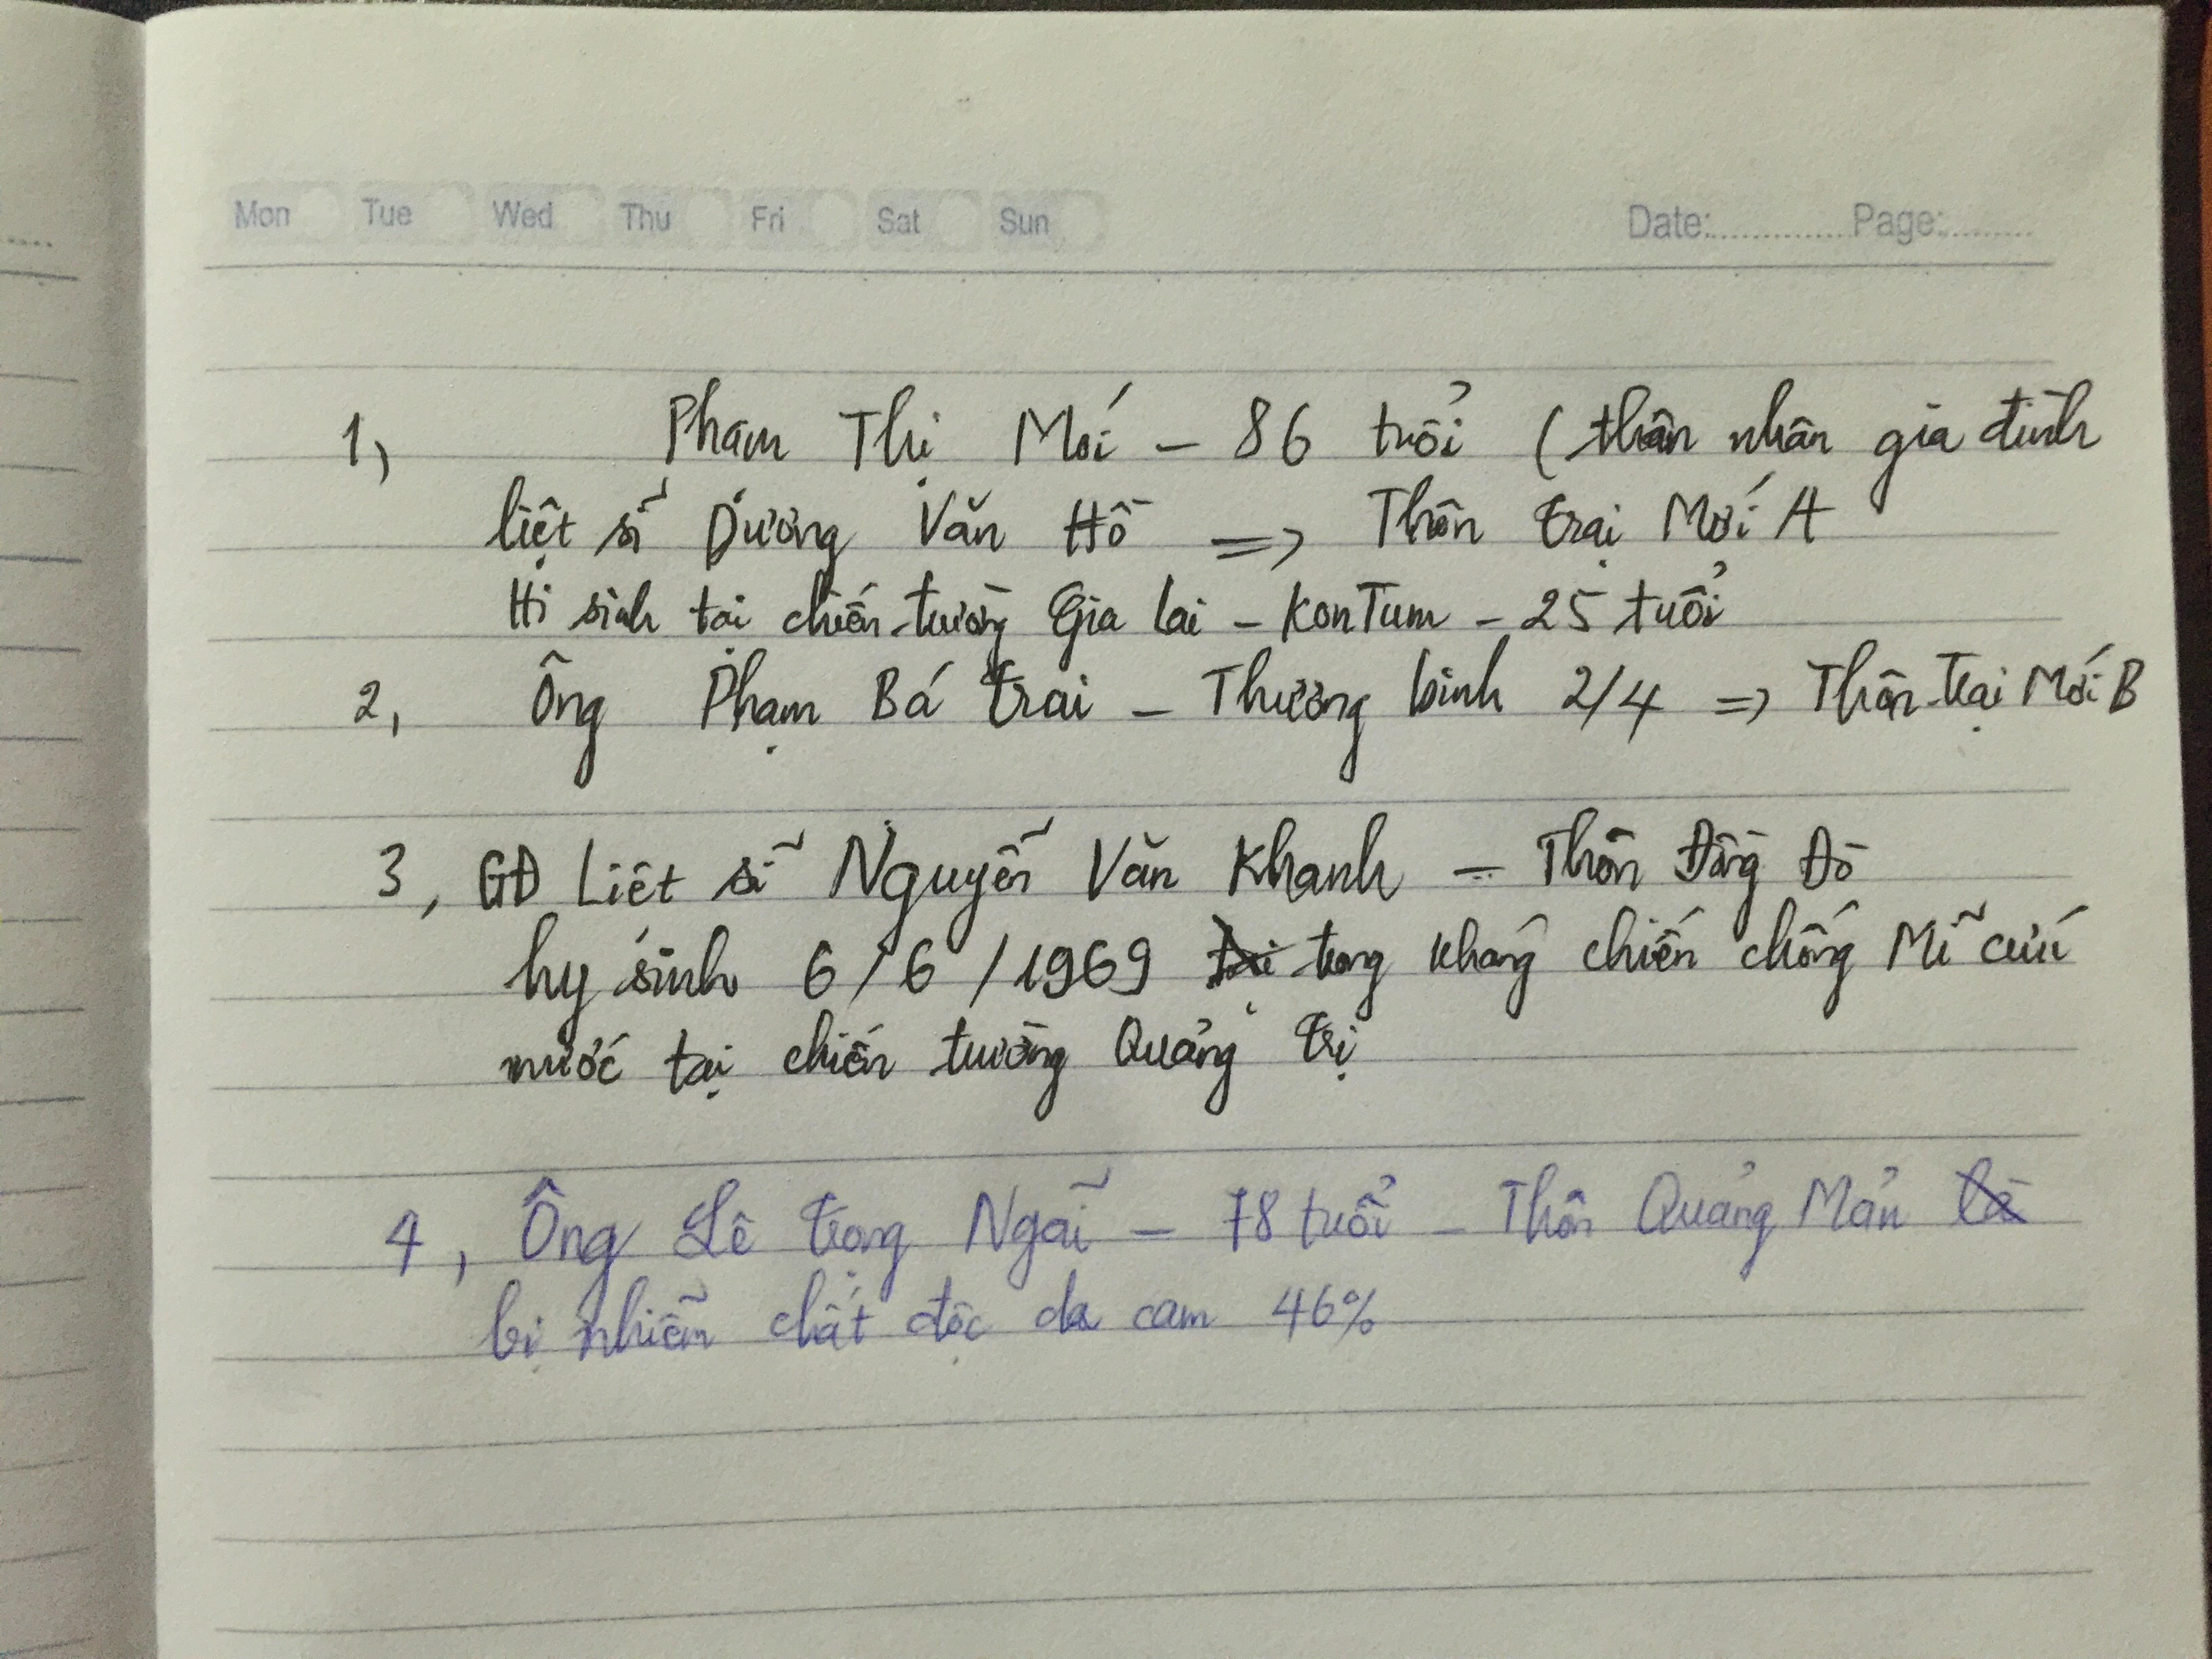 Mon Tue Wed Thu Fri Sat Sun Date:............... Page:..........
1, Phạm Thị Mới - 86 tuổi (thân nhân gia đình
liệt sĩ Dương Văn Hồ => Thôn Trại Mới A
Hi sinh tại chiến trường Gia Lai - KonTum - 25 tuổi
2, Ông Phạm Bá Trai - Thương binh 2/4 => Thôn Trại Mới B
3, GĐ Liệt sĩ Nguyễn Văn Khanh - Thôn Đồng Đò
hy sinh 6/6/1969 trong kháng chiến chống Mĩ cứu
nước tại chiến trường Quảng Trị
4, Ông Lê Trọng Ngãi - 78 tuổi - Thôn Quảng Mản
bị nhiễm chất độc da cam 46%